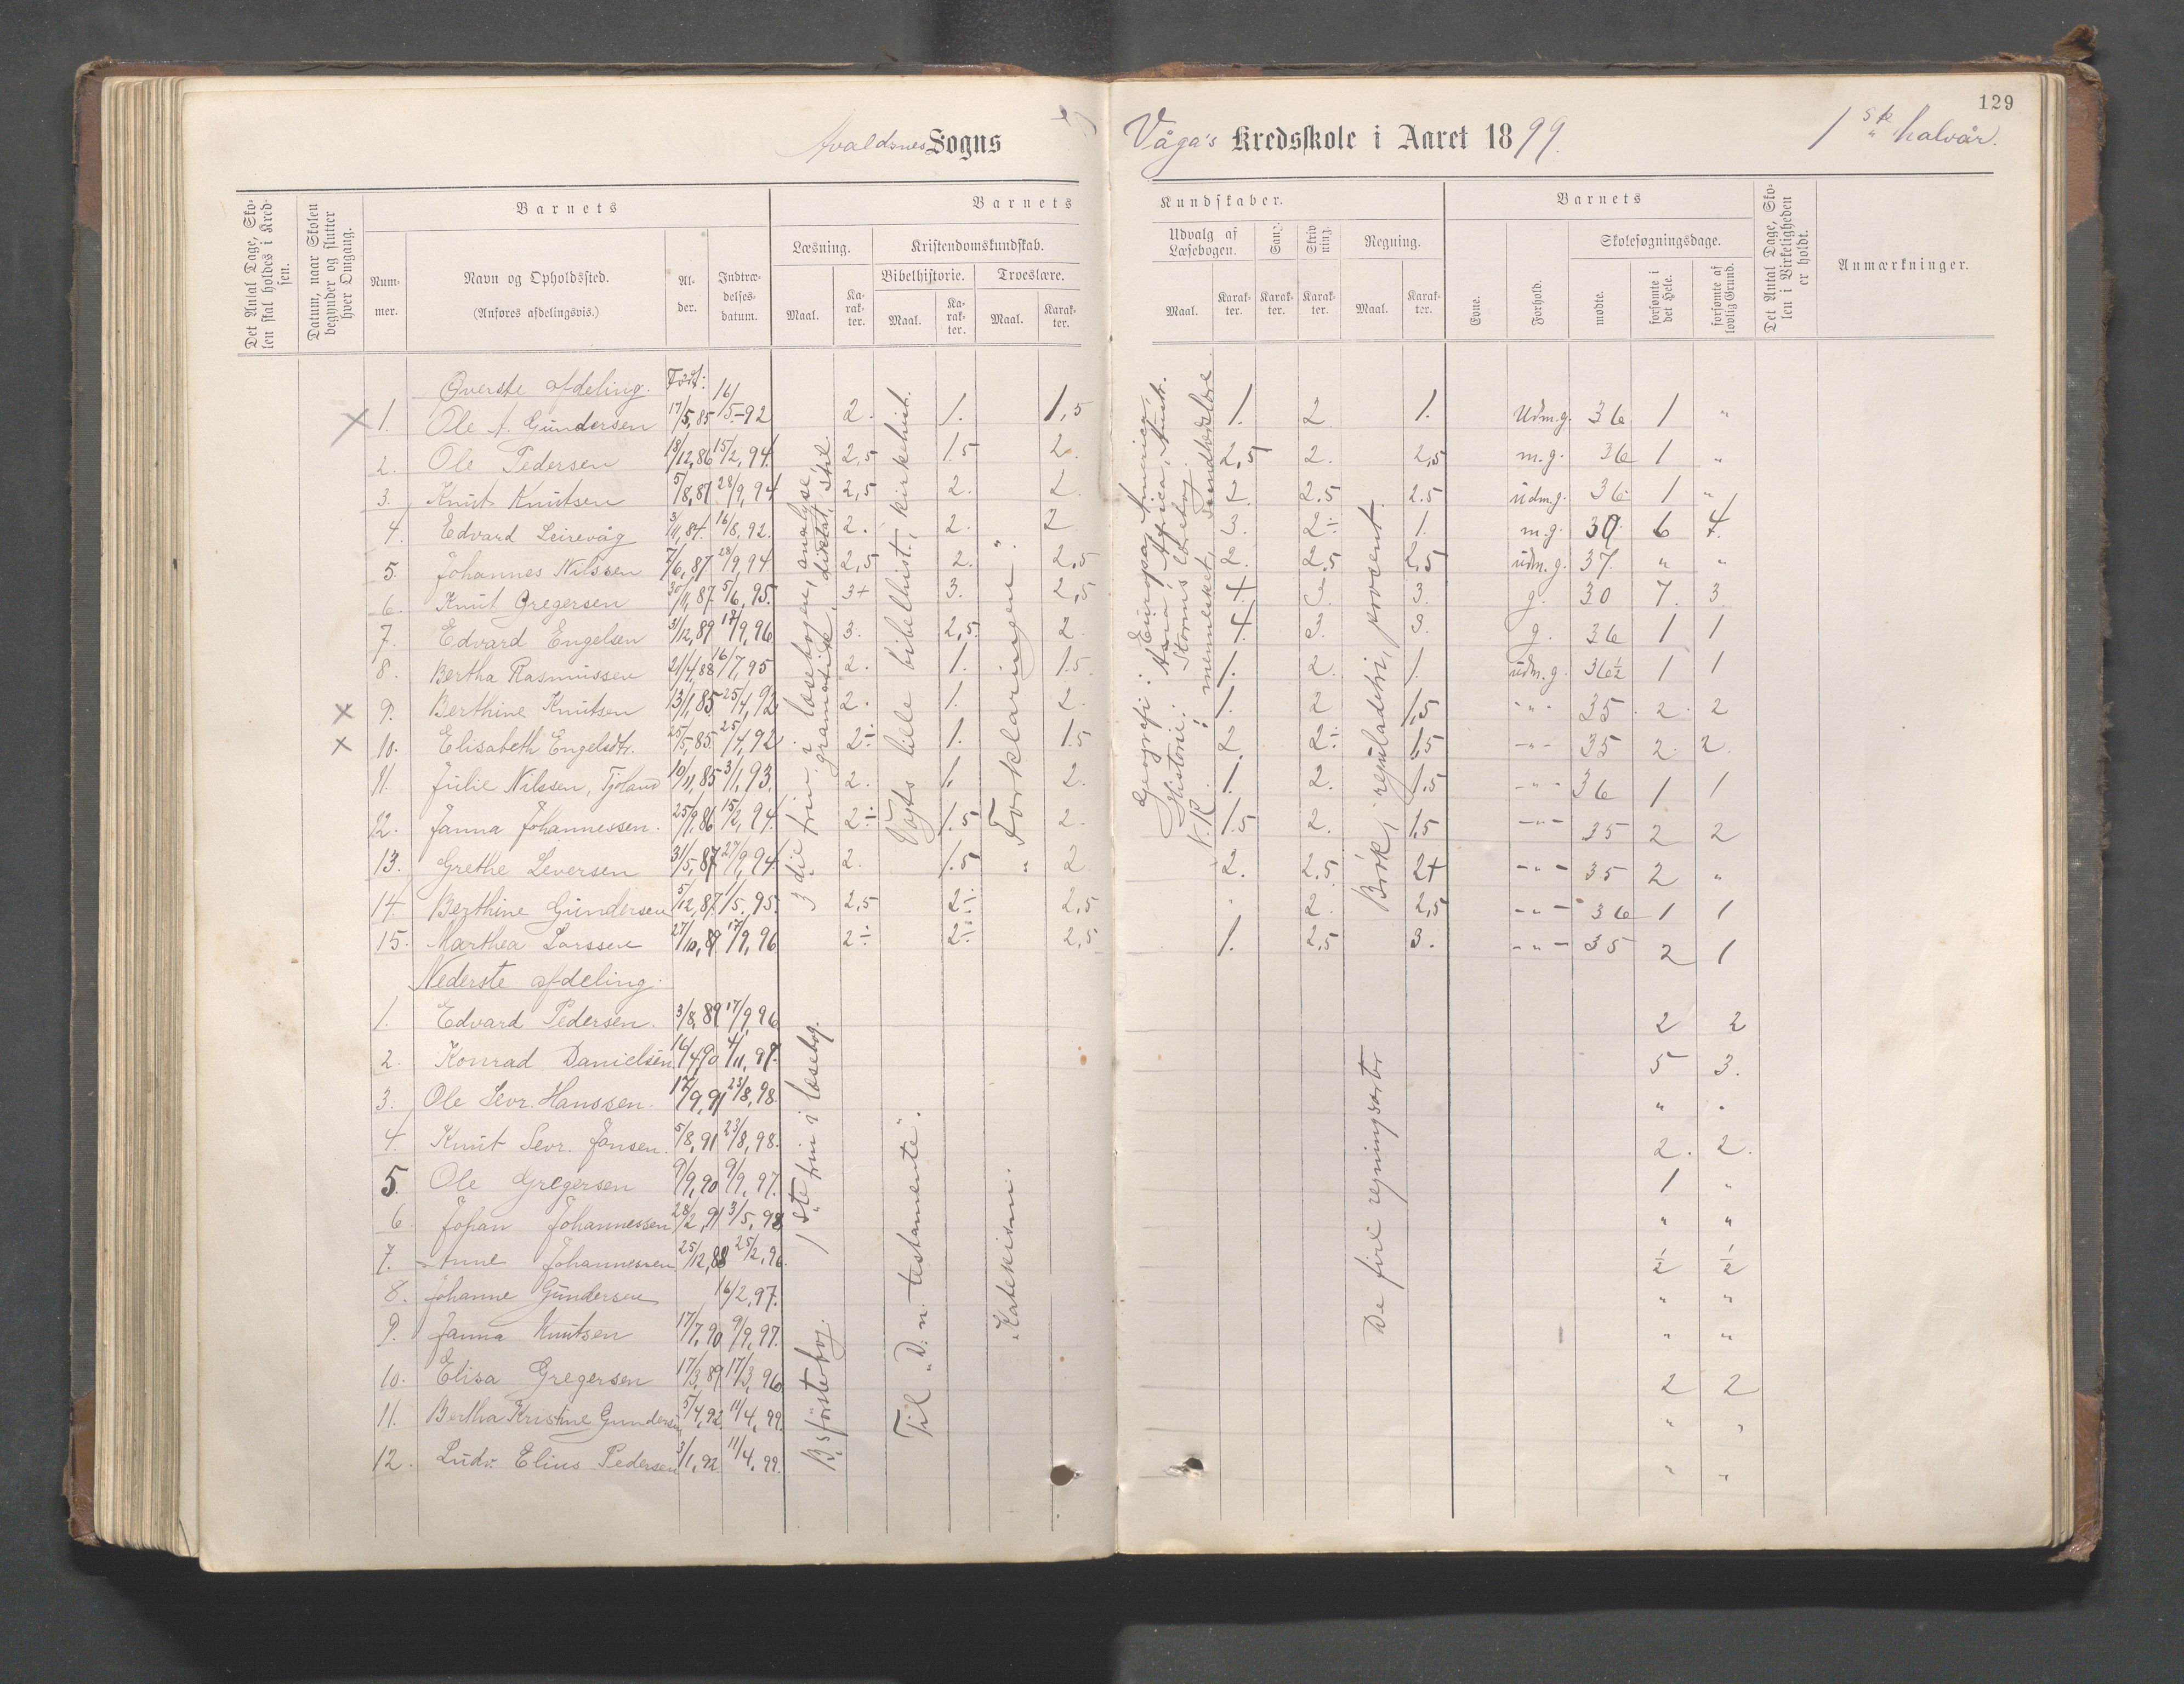 129
Avaldsnes Sogns
Våga's Kredsskole i Aaret 1899.
1 ste halvår.
Det Antal Dage, Skolen skal holdes i Kredsen.
Datum, naar Skolen begynder og slutter hver Omgang.
Barnets
Nummer.
Navn og Opholdssted.
(Anføres afdelingsvis.)
Alder.
Indtrædelsesdatum.
Barnets
Læsning.
Maal.
Karakter.
Kristendomskundskab.
Bibelhistorie.
Maal.
Karakter.
Troeslære.
Maal.
Karakter.
Kundskaber.
Udvalg af Læsebogen.
Maal.
Karakter.
Sang.
Karakter.
Skrivning.
Karakter.
Regning.
Maal.
Karakter.
Barnets
Evne.
Forhold.
Skolesøgningsdage.
mødte.
forsømte i det Hele.
forsømte af lovlig Grund.
Det Antal Dage, Skolen i Virkeligheden er holdt.
Anmærkninger.
Øverste afdeling. Født:
× 1. Ole A. Gundersen 17/5, 85 16/5-92 2. 1. 1,5 1. 2 1. Udm.g. 36 1 "
2. Ole Pedersen 18/12, 86 15/2, 94. 2,5 1.5 2. 2,5 2. 2,5 m.g. 36 1 "
3. Knut Knutsen 5/8, 87 28/9, 94 2,5 2. 2. 2 2.5 2.5 udm.g. 36 1 "
4. Edvard Leirevåg 3/11, 84. 16/8, 92. 2. 2. 2 3. 2÷ 1. m.g. 30 6 4.
5. Johannes Nilssen 7/6, 87 28/9, 94 2,5 2. 2,5 2. 2,5 2,5 udm.g. 37. " "
6. Knut Gregersen 30/11, 87. 5/6, 95. 3+ 3. 2,5 4. 3. 3. g. 30 7. 3.
7. Edvard Engelsen 31/12, 89 17/9, 96 3. 2,5. 2. 4. 3. 3. g. 36 1 1
8. Bertha Rasmussen 21/4, 88 16/7, 95 2. 1. 1.5 1. 2. 1. udm.g. 36½ 1 1
× 9. Berthine Knutsen 13/1, 85. 25/4, 92. 2. 1. 2. 1. 2 1,5 " 35 2 2
× 10. Elisabeth Engelsdtr. 25/5, 85. 25/4, 92 2÷ 1. 1.5 2 2÷ 1,5 -"- 35 2. 2.
11. Julie Nilssen, Tjøland 10/11, 85 3/1, 93. 2. 1. 2. 1. 2. 1.5 -"- 36 1 1
12. Janna Johannessen. 25/9, 86 15/2, 94. 2÷ 1.5 2. 1.5 2. 1,5 -"- 35 2 2
13. Grethe Leversen 31/5, 87 27/9, 94. 2. 1.5 2 2. 2,5 2+ -"- 35 2 "
14. Berthine Gundersen 5/12, 87. 1/5. 95. 2,5 2÷ 2,5 2. 2,5 -"- 36 1 1
15. Marthea Larssen 27/10, 89. 17/9, 96 2÷ 2÷ 2,5 1. 2,5 3. -"- 35 2 1
3die trin i læsebogen, analyse, gramatikk, diktat, stil.
Vogts lille bibelhist., kirkehist.
" Forklaringen "
Geografi: Europa, America, Asia, Africa, Austr.
Historie: Storms lærebog.
N. R.: mennesket, sundhedslære
Brøk, reguladetri, procent.
Nederste afdeling.
1. Edvard Pedersen. 3/8, 89 17/9, 96 2 2
2. Konrad Danielsen 16/4, 90 4/11, 97. 5 3.
3. Ole Sevr. Hanssen. 17/9, 91 23/8, 98. " "
4. Knut Sevr. Jansen. 5/8, 91 23/8, 98. 2. 2.
5. Ole Gregersen 9/9, 90 9/9, 97. 1 "
6. Johan Johannessen 28/2, 91 3/5, 98 " "
7. Anne Johannessen 25/12, 88 25/2, 96. ½ ½
8. Johanne Gundersen 16/2, 97. " "
9. Janna Knutsen 17/7, 90 9/9, 97. " "
10. Elisa Gregersen 17/3, 89 17/3, 96. 2 2
11. Bertha Kristine Gundersen 5/4, 92. 11/4, 99. " "
12. Ludv. Elius Pedersen 3/1, 92. 11/4, 99. " "
1 ste trin i læsebog.
B's førstebog.
Til "D. n. testamente".
"Katekism.
De fire regningsarter